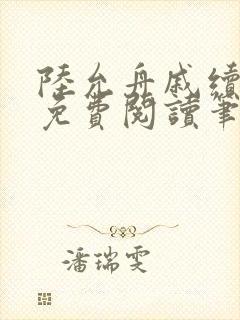 陸允舟戚續
免費閱讀筆
潘瑞雯